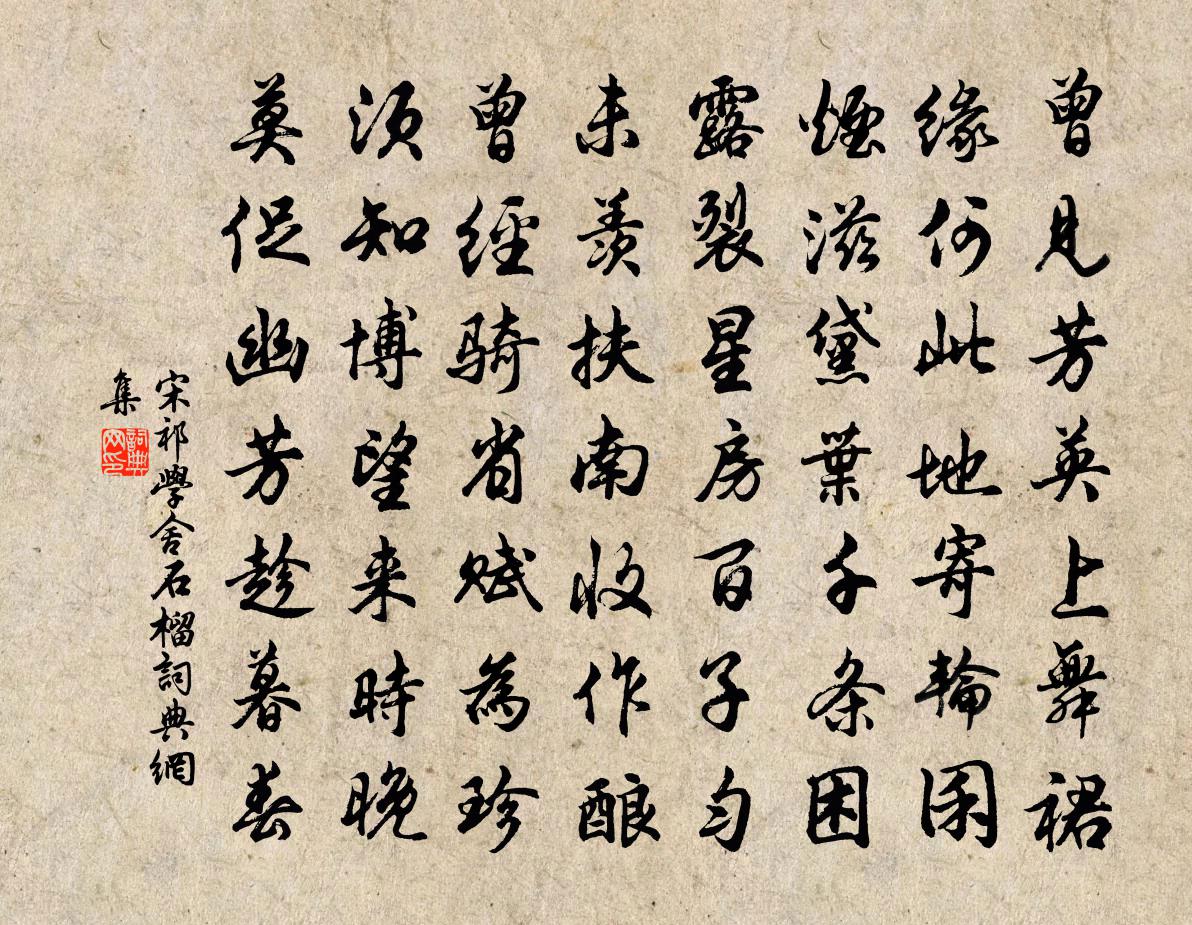 曾見芳英上舞裙
緣何此地寄輪囷
煙滋黛葉千条困
露裂星房百子勻
未羨扶南收作酿
曾經騎省賦為珍
須知博望来時晚
莫促幽芳趁暮春
宋祁學舍石榴詞典網
集
詞典
网印